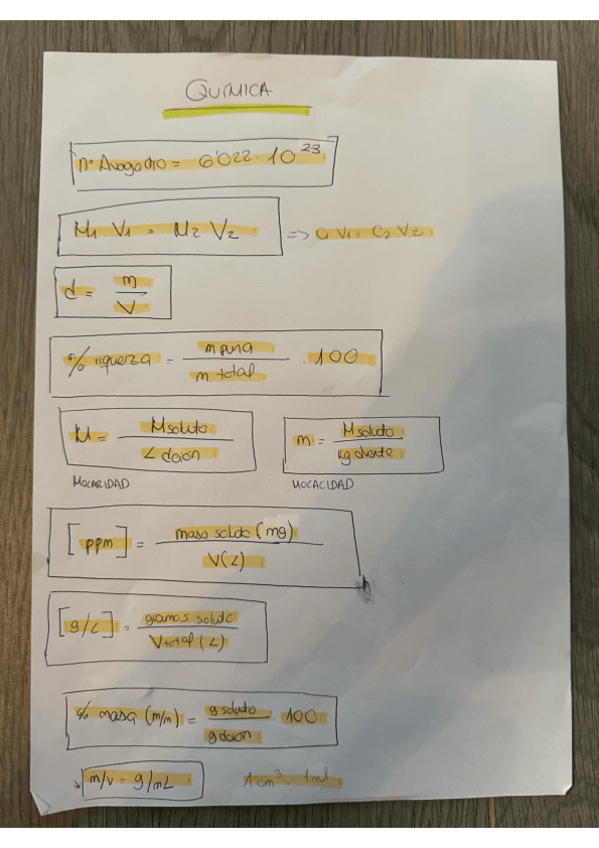 QUÍMICA
nº Avogadro = 6'022 · 10²³
M₁ · V₁ = M₂ V₂ => C₁ V₁ = C₂ V₂
d = m / V
% riqueza = m pura / m. total · 100
M = M soluto / L dción
m = M soluto / kg dvente
MOLARIDAD MOLALIDAD
[ppm] = masa soluto (mg) / V(L)
[g/L] = gramos soluto / V total (L)
% masa (m/m) = g soluto / g dción · 100
m/v = g/mL 1 cm³ = 1 ml